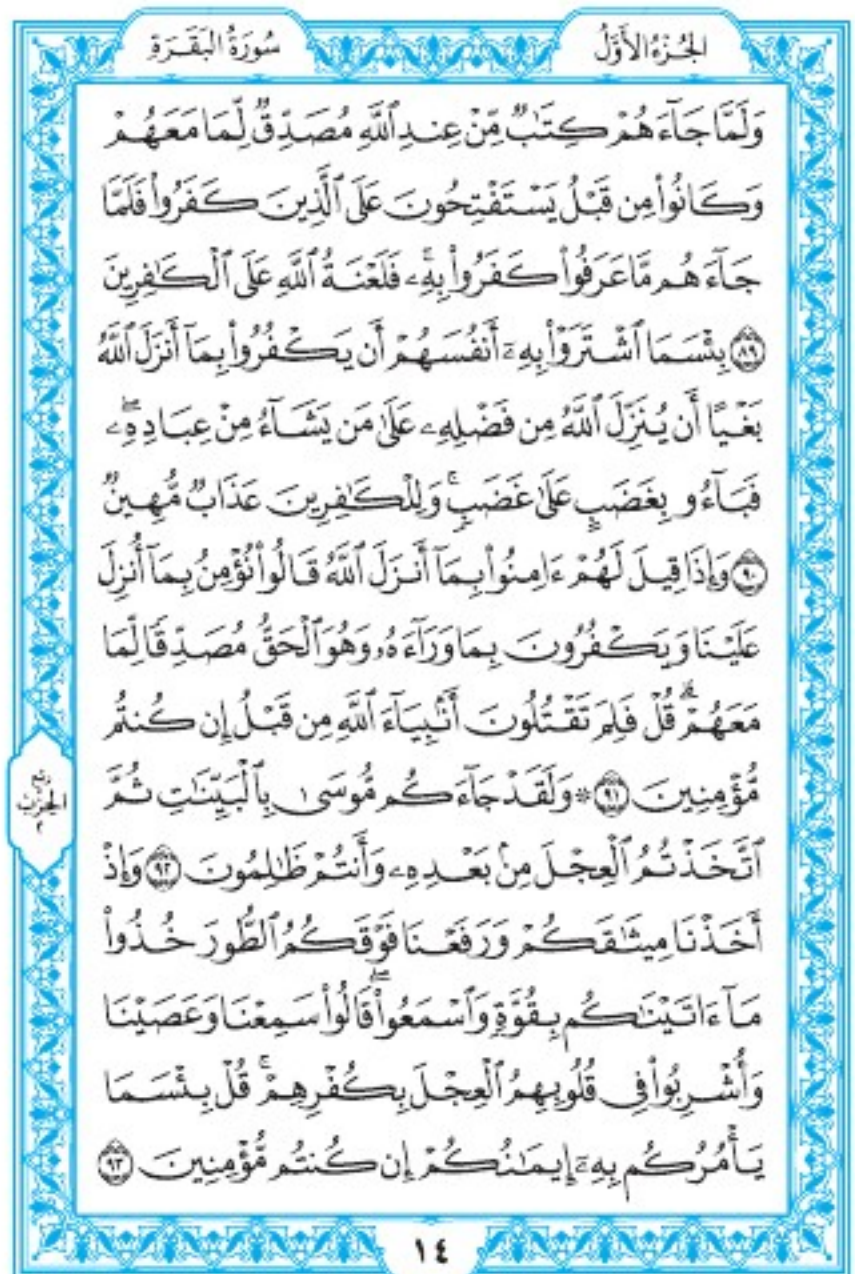 الجُزْءُ الأَوَّلُ
سُورَةُ البَقَرَةِ
وَلَمَّا جَآءَهُمْ كِتَٰبٌ مِّنْ عِندِ ٱللَّهِ مُصَدِّقٌ لِّمَا مَعَهُمْ
وَكَانُوا۟ مِن قَبْلُ يَسْتَفْتِحُونَ عَلَى ٱلَّذِينَ كَفَرُوا۟ فَلَمَّا
جَآءَهُم مَّا عَرَفُوا۟ كَفَرُوا۟ بِهِۦۚ فَلَعْنَةُ ٱللَّهِ عَلَى ٱلْكَٰفِرِينَ
٨٩ بِئْسَمَا ٱشْتَرَوْا۟ بِهِۦٓ أَنفُسَهُمْ أَن يَكْفُرُوا۟ بِمَآ أَنزَلَ ٱللَّهُ
بَغْيًا أَن يُنَزِّلَ ٱللَّهُ مِن فَضْلِهِۦ عَلَىٰ مَن يَشَآءُ مِنْ عِبَادِهِۦۖ
فَبَآءُو بِغَضَبٍ عَلَىٰ غَضَبٍۚ وَلِلْكَٰفِرِينَ عَذَابٌ مُّهِينٌ
٩٠ وَإِذَا قِيلَ لَهُمْ ءَامِنُوا۟ بِمَآ أَنزَلَ ٱللَّهُ قَالُوا۟ نُؤْمِنُ بِمَآ أُنزِلَ
عَلَيْنَا وَيَكْفُرُونَ بِمَا وَرَآءَهُۥ وَهُوَ ٱلْحَقُّ مُصَدِّقًا لِّمَا
مَعَهُمْۗ قُلْ فَلِمَ تَقْتُلُونَ أَنۢبِيَآءَ ٱللَّهِ مِن قَبْلُ إِن كُنتُم
مُّؤْمِنِينَ ٩١ ۞ وَلَقَدْ جَآءَكُم مُّوسَىٰ بِٱلْبَيِّنَٰتِ ثُمَّ
ٱتَّخَذْتُمُ ٱلْعِجْلَ مِنۢ بَعْدِهِۦ وَأَنتُمْ ظَٰلِمُونَ ٩٢ وَإِذْ
أَخَذْنَا مِيثَٰقَكُمْ وَرَفَعْنَا فَوْقَكُمُ ٱلطُّورَ خُذُوا۟
مَآ ءَاتَيْنَٰكُم بِقُوَّةٍ وَٱسْمَعُوا۟ۖ قَالُوا۟ سَمِعْنَا وَعَصَيْنَا
وَأُشْرِبُوا۟ فِى قُلُوبِهِمُ ٱلْعِجْلَ بِكُفْرِهِمْۚ قُلْ بِئْسَمَا
يَأْمُرُكُم بِهِۦٓ إِيمَٰنُكُمْ إِن كُنتُم مُّؤْمِنِينَ ٩٣
ربع
الحزب
٢
١٤